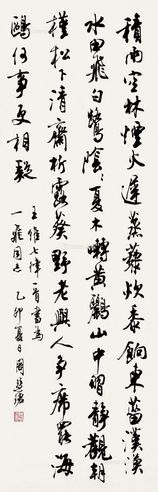 積雨空林煙火遲蒸藜炊黍餉東菑漠漠
水田飛白鷺陰陰夏木囀黃鸝山中習靜觀朝
槿松下清齋折露葵野老與人爭席罷海
鷗何事更相疑
王維七律一首書為
乙卯夏日